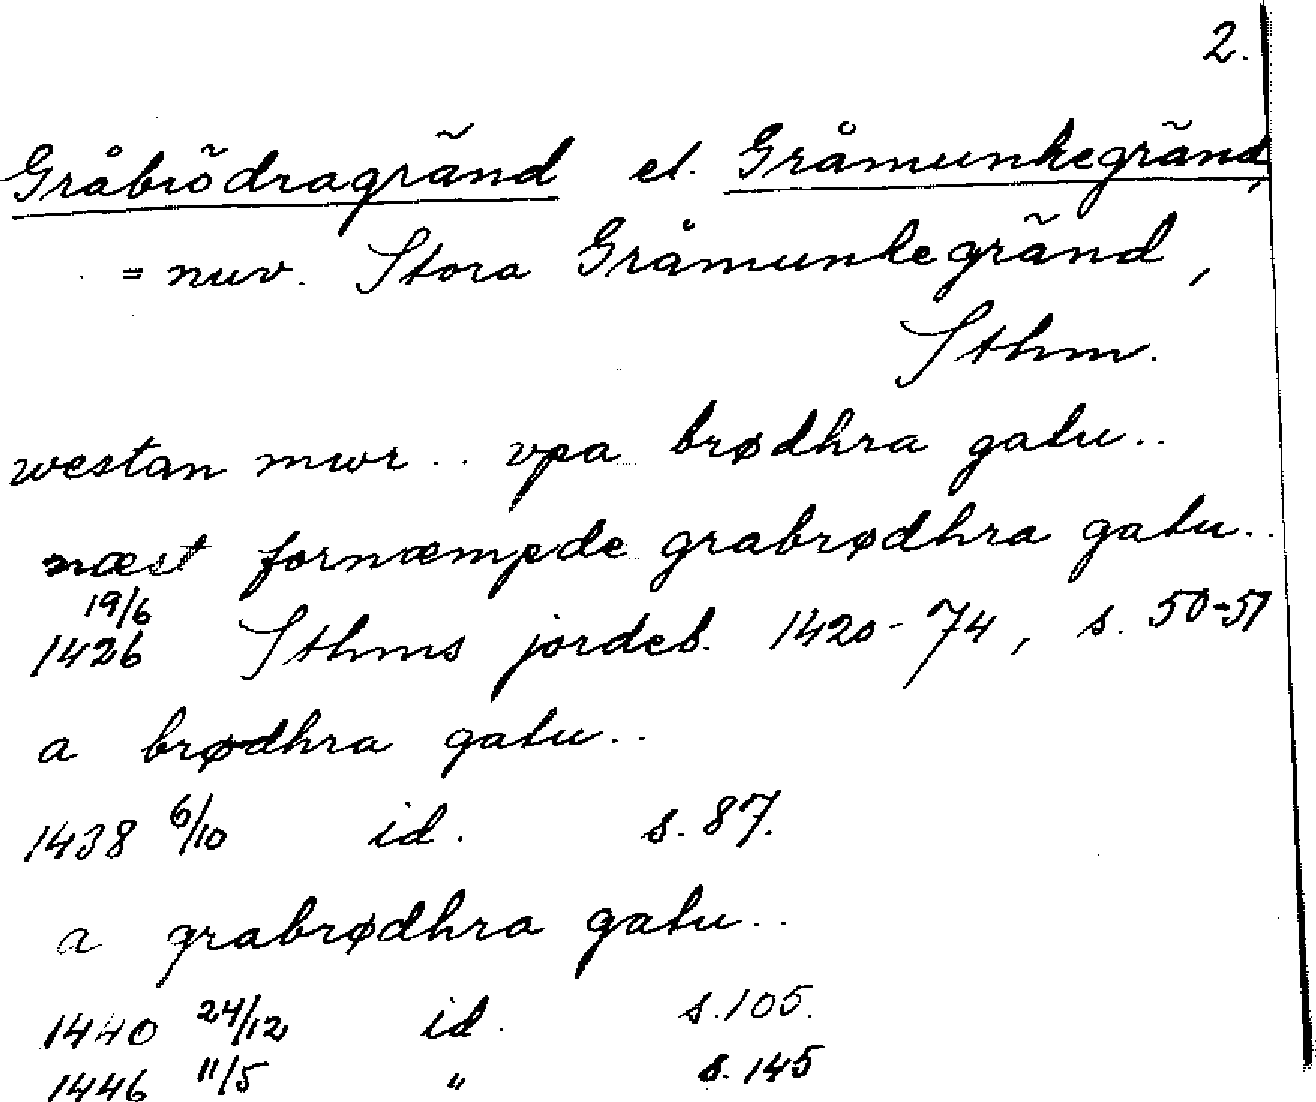 2.
Gråbrödragränd el. Gråmunkegränd,
= nuv. Stora Gråmunkegränd,
Sthm.
westan mwr .. vpa brødhra gatu..
næst fornæmpde grabrødhra gatu..
19/6
1426 Sthms jordeb. 1420-74, s. 50-51
a brødhra gatu..
1438 6/10 id. s. 87.
a grabrødhra gatu..
1440 24/12 id. s. 105.
1446 11/5 " s. 145